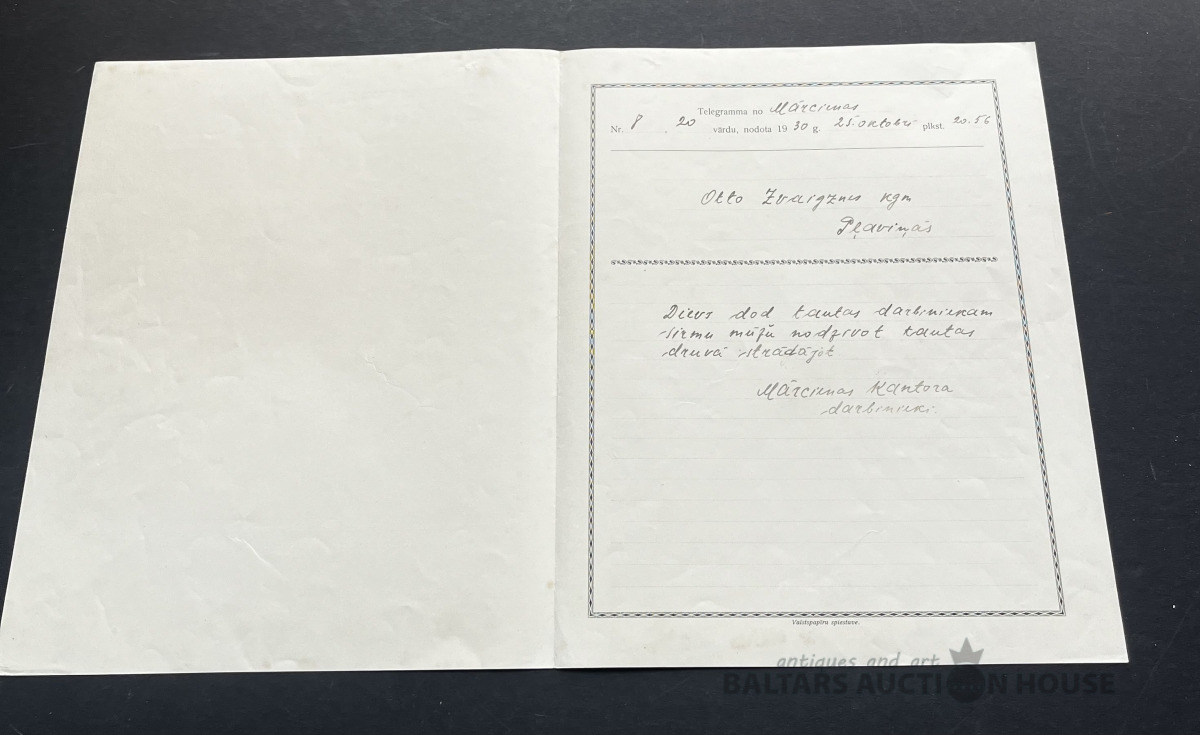 Telegramma no Mārcienas
Nr. 8 20 vārdu, nodota 1930 g. 25. oktobrī plkst. 20.56
Otto Zvaigznes kgm
Pļaviņās
Dievs dod tautas darbiniekam
sirmu mūžu nodzīvot tautas
druvā strādājot
Mārcienas Kantora
darbinieki.
Valstspapīru spiestuve.
antiques and art
BALTARS AUCTION HOUSE